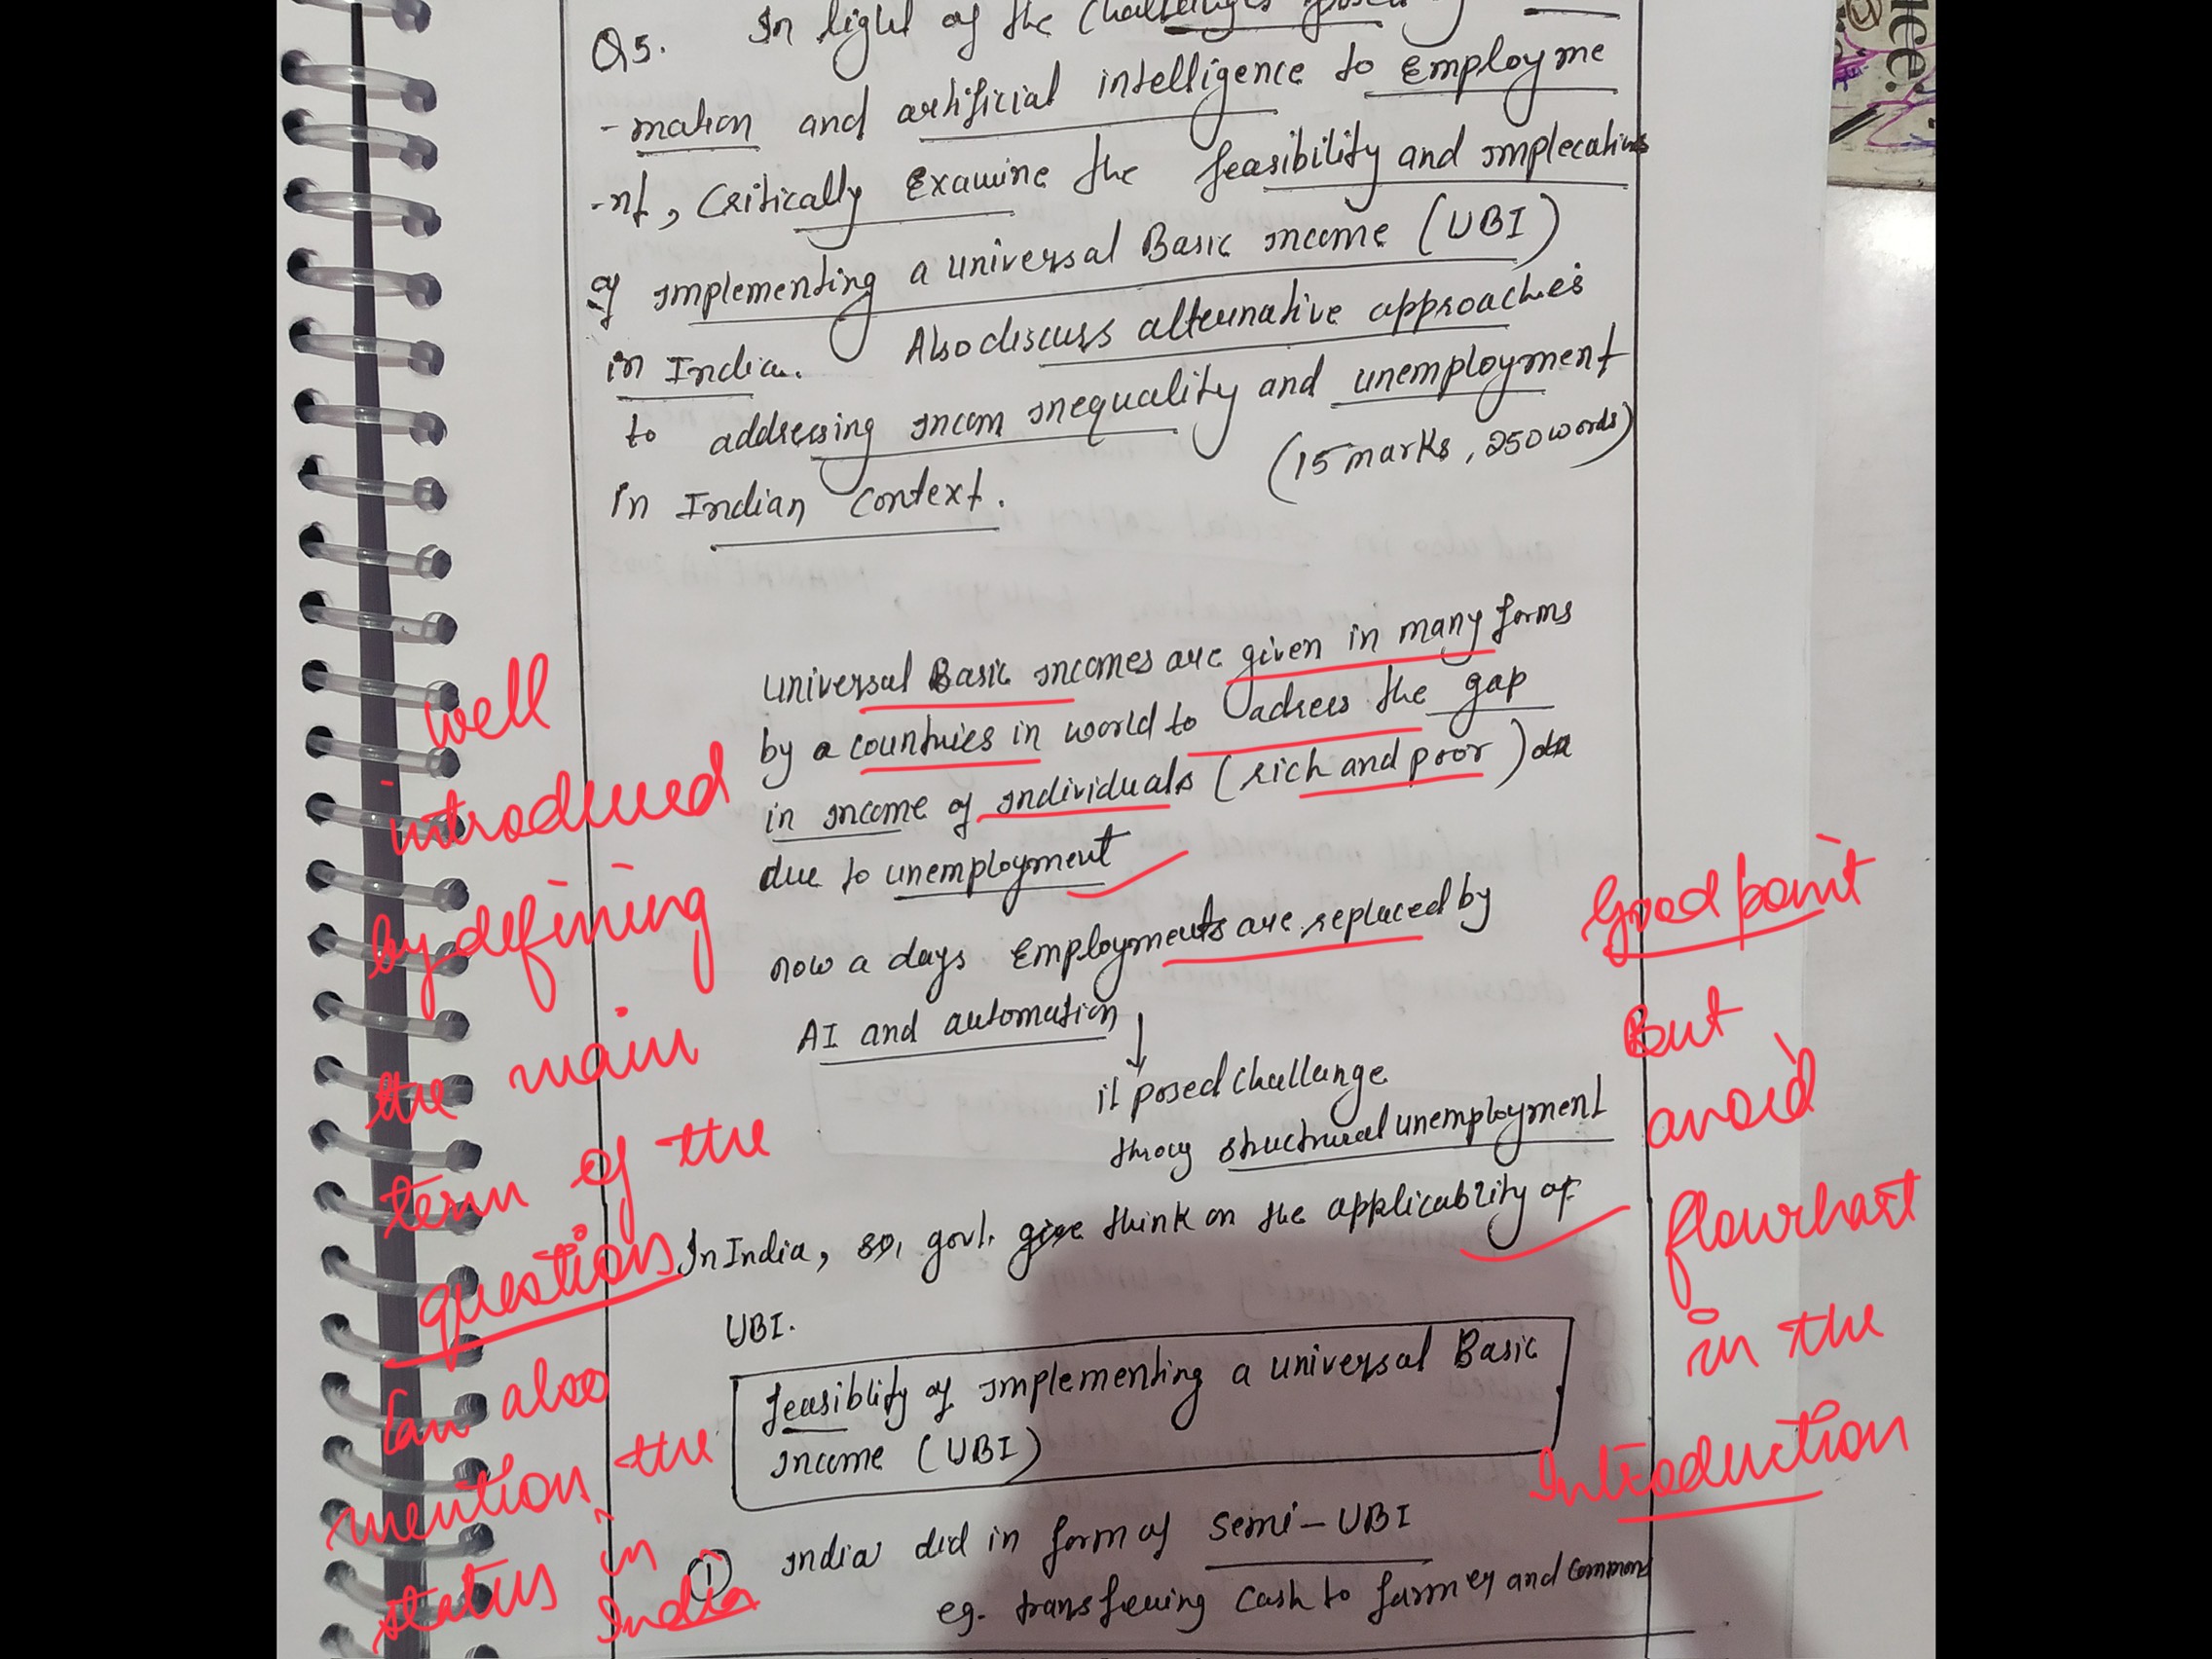 Q5. In light of the Challenges posed
-mation and artificial intelligence to Employme
-nt, Critically Examine the feasibility and implecations
of implementing a universal Basic income (UBI)
in India. Also discuss alternative approaches
to addressing incom inequality and unemployment
in Indian Context. (15 marks, 250 words)
universal Basic incomes are given in many forms
by a countries in world to adress the gap
in income of individuals (rich and poor)
due to unemployment
now a days Employments are replaced by
AI and automation
it posed challange
throug structural unemployment
In India, so, govt. give think on the applicability of
UBI.
feasiblity of implementing a universal Basic
income (UBI)
① india did in form of semi-UBI
eg. transfering cash to farmer and common
well
introduced
by defining
the main
term of the
questions
Can also
mention the
status in
India
Good point
But
avoid
flowrhart
in the
Introduction
lce.